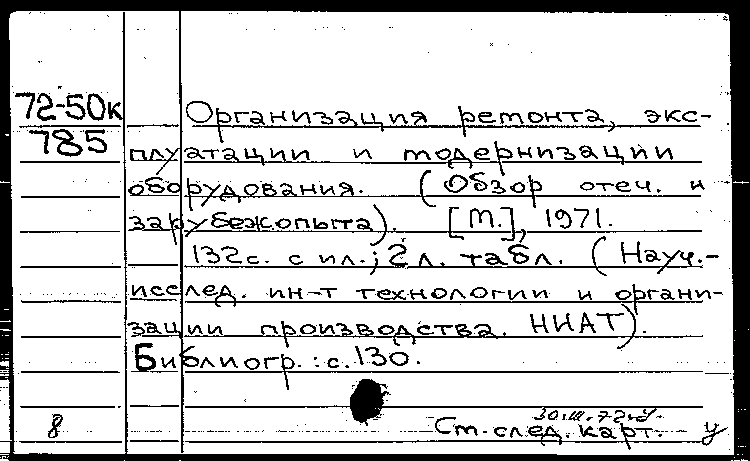 72-50к
785
Организация ремонта, экс-
плуатации и модернизации
оборудования. (Обзор отеч. и
зарубеж. опыта). [М.], 1971.
132с. с ил.; 2 л. табл. (Науч.-
исслед. ин-т технологии и органи-
зации производства. НИАТ).
Библиогр.: с.130.
8
Ст. след. карт. у